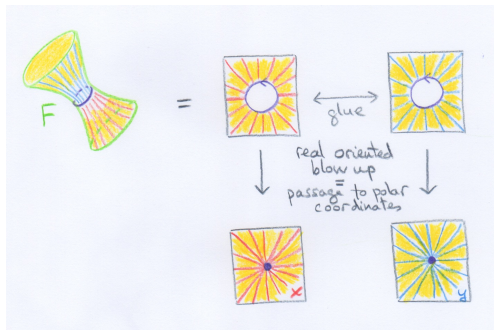 F
=
glue
real oriented
blow up
=
passage to polar
coordinates
x
y